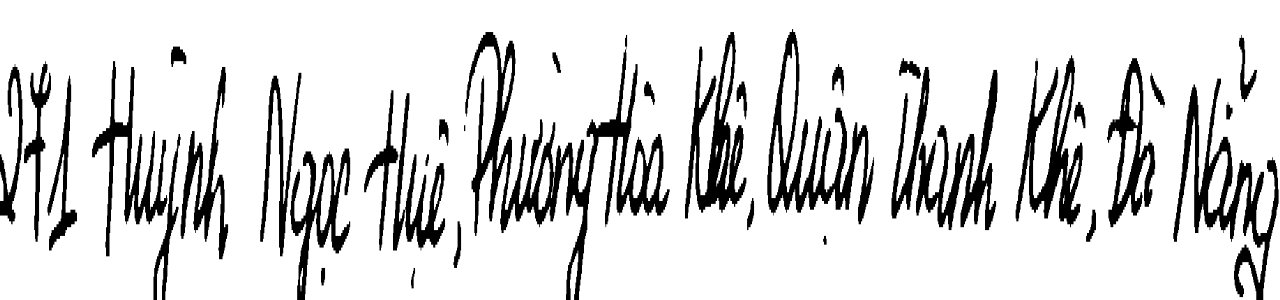 271 Huỳnh Ngọc Huệ, Phường Hoà Khê, Quận Thanh Khê, Đà Nẵng